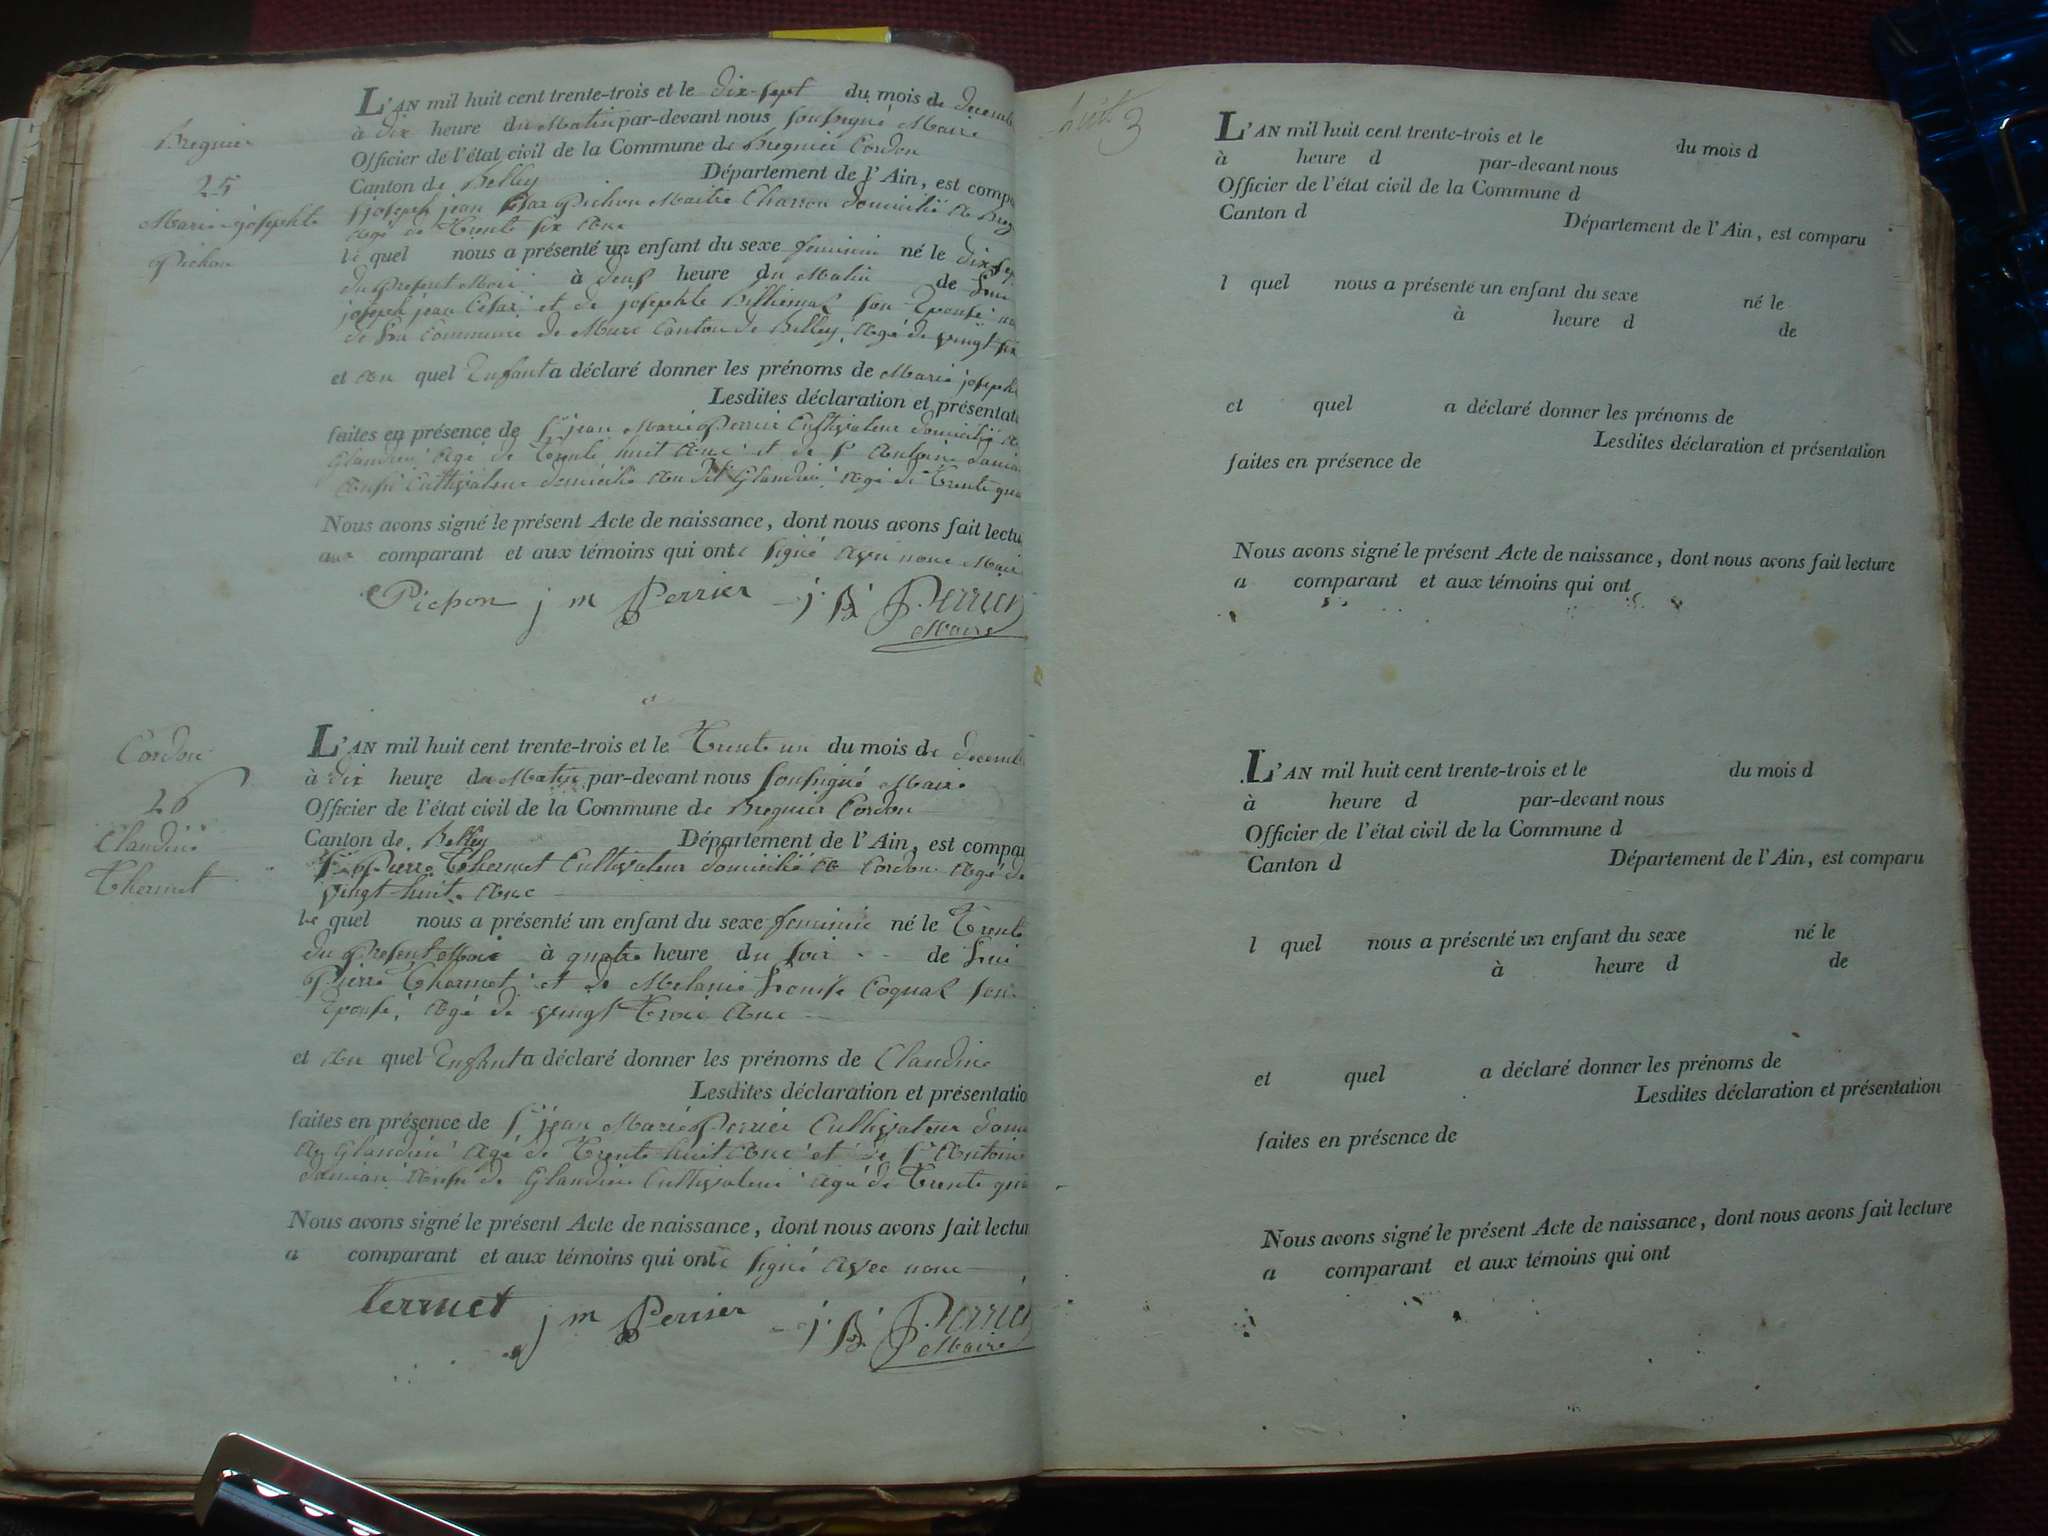 Bregnier
25
Marie josephte
Pichon
L'AN mil huit cent trente-trois et le dix-sept du mois de decemb
à dix heure du Matin par-devant nous soussigné Maire
Officier de l'état civil de la Commune de Bregnier Cordon
Canton de Belley Département de l'Ain, est compa
joseph jean Cesar Pichon Maitre Charron domicilié a Breg
agé de Trente six ans
le quel nous a présenté un enfant du sexe feminin né le dix-sep
du present Mois à deux heure du Matin de lui
joseph jean Cesar et de josephte son Epouse
de la Commune de Canton de Belley, agé de vingt six
et au quel Enfant a déclaré donner les prénoms de Marie joseph
Lesdites déclaration et présentat
faites en présence de Sr jean Marie Perrier Cultivateur domicilié a
Glandieu agé de Trente huit ans et de Sr Antoine damian
Cultivateur domicilié au dit Glandieu agé de Trente qua
Nous avons signé le présent Acte de naissance, dont nous avons fait lectu
aux comparant et aux témoins qui ont signé avec nous Mair
Pichon j m Perrier j. B. Perrier
Maire
Cordon
26
Claudine
Thermet
L'AN mil huit cent trente-trois et le Trente un du mois de decemb
à dix heure du Matin par-devant nous soussigné Maire
Officier de l'état civil de la Commune de Bregnier Cordon
Canton de Belley Département de l'Ain, est compar
Sr Pierre Thermet Cultivateur domicilié a Cordon agé de
vingt huit ans
le quel nous a présenté un enfant du sexe feminin né le Trente
du present Mois à quatre heure du soir de lui
Pierre Thermet et de Melanie Louise Coquaz son
Epouse, agé de vingt Trois ans
et au quel Enfant a déclaré donner les prénoms de Claudine
Lesdites déclaration et présentatio
faites en présence de Sr jean Marie Perrier Cultivateur domi
a Glandieu agé de Trente huit ans et de Sr Antoine
damian de Glandieu Cultivateur agé de Trente qua
Nous avons signé le présent Acte de naissance, dont nous avons fait lectur
a comparant et aux témoins qui ont signé avec nous
Termet j m Perrier j. B. Perrier
Maire
huit 3
L'AN mil huit cent trente-trois et le du mois d
à heure d par-devant nous
Officier de l'état civil de la Commune d
Canton d Département de l'Ain, est comparu
l quel nous a présenté un enfant du sexe né le
à heure d de
et quel a déclaré donner les prénoms de
Lesdites déclaration et présentation
faites en présence de
Nous avons signé le présent Acte de naissance, dont nous avons fait lecture
a comparant et aux témoins qui ont
L'AN mil huit cent trente-trois et le du mois d
à heure d par-devant nous
Officier de l'état civil de la Commune d
Canton d Département de l'Ain, est comparu
l quel nous a présenté un enfant du sexe né le
à heure d de
et quel a déclaré donner les prénoms de
Lesdites déclaration et présentation
faites en présence de
Nous avons signé le présent Acte de naissance, dont nous avons fait lecture
a comparant et aux témoins qui ont